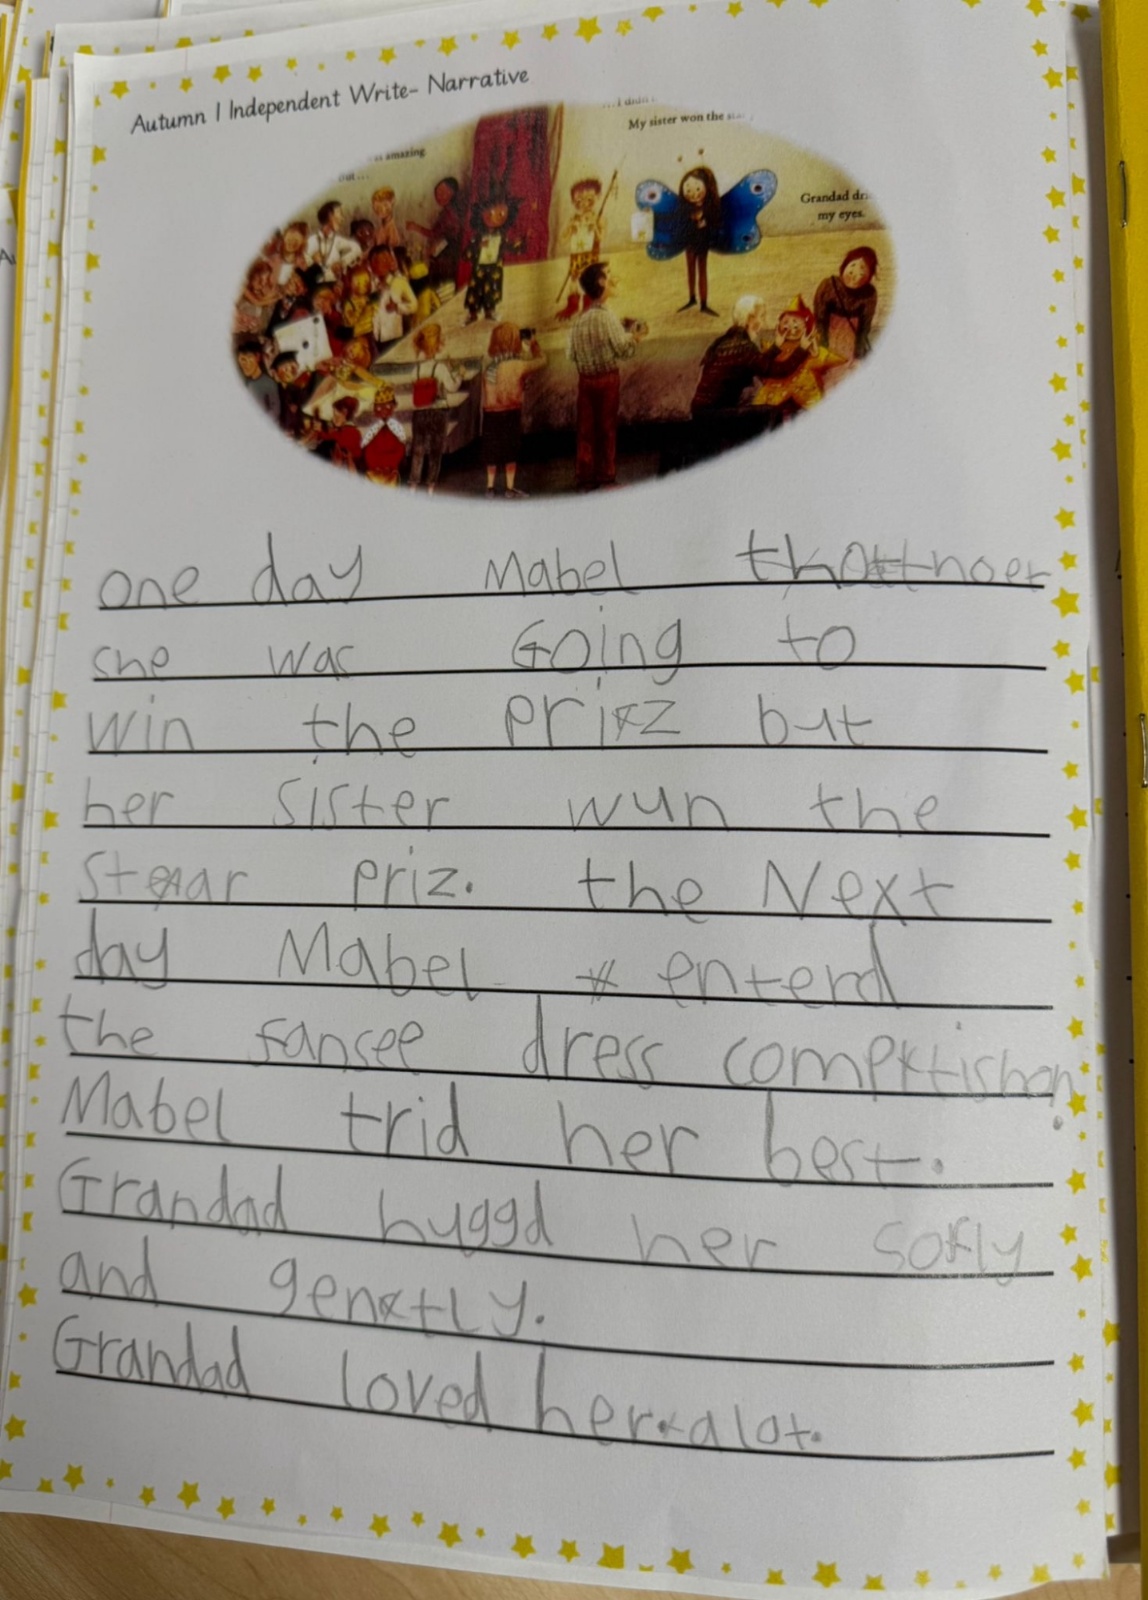 Autumn 1 Independent Write- Narrative
My sister won the
amazing
out...
Grandad
my eyes.
one day Mabel
she was Going to
win the priz but
her sister wun the
star priz. the Next
day Mabel enterd
the fansee dress comptishon.
Mabel trid her best.
Grandad huggd her sofly
and gentLy.
Grandad loved her alot.